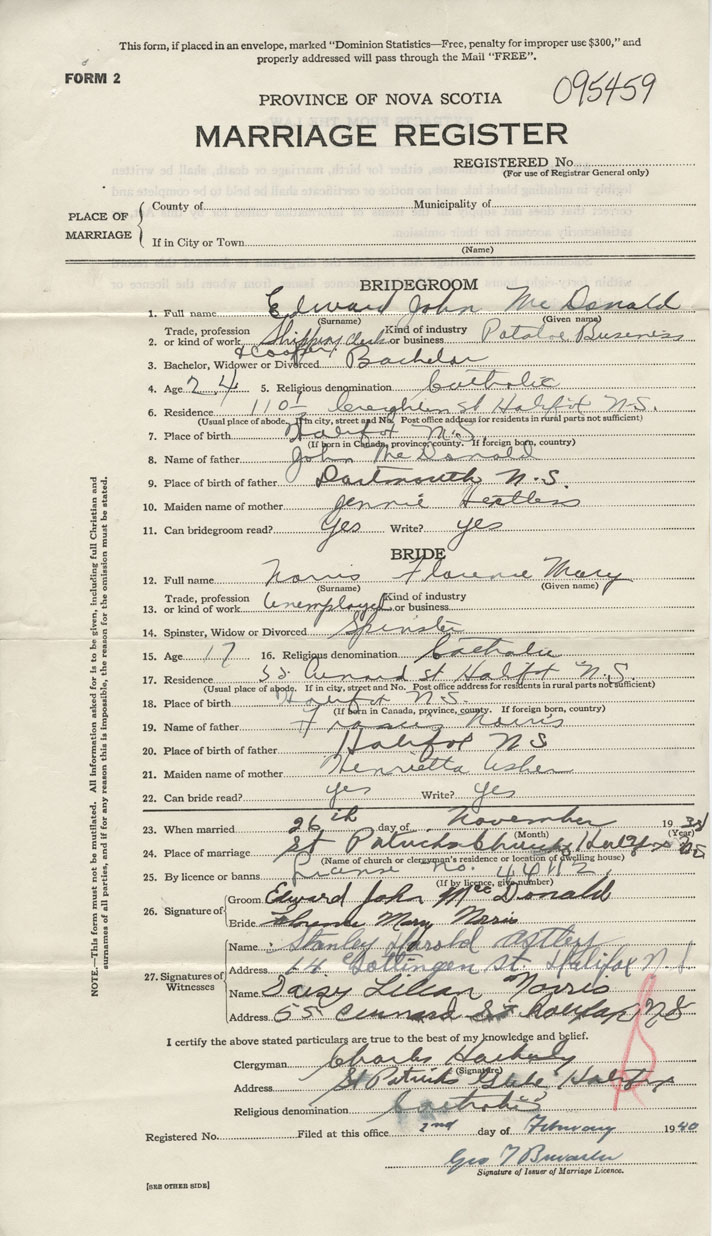 This form, if placed in an envelope, marked "Dominion Statistics—Free, penalty for improper use $300," and
properly addressed will pass through the Mail "FREE".
FORM 2
095459
PROVINCE OF NOVA SCOTIA
MARRIAGE REGISTER
REGISTERED No.
(For use of Registrar General only)
PLACE OF MARRIAGE
County of Municipality of
If in City or Town
(Name)
BRIDEGROOM
1. Full name Edward John McDonald
(Surname) (Given name)
2. Trade, profession or kind of work Shipping clerk & Cooper Kind of industry or business Potatoe Business
3. Bachelor, Widower or Divorced Bachelor
4. Age 24 5. Religious denomination Catholic
6. Residence 110 Creighton St Halifax N.S.
(Usual place of abode. If in city, street and No. Post office address for residents in rural parts not sufficient)
7. Place of birth Halifax N.S.
(If born in Canada, province, county. If foreign born, country)
8. Name of father John McDonald
9. Place of birth of father Dartmouth N.S.
10. Maiden name of mother Jennie
11. Can bridegroom read? Yes Write? yes
BRIDE
12. Full name Norris Florence Mary
(Surname) (Given name)
13. Trade, profession or kind of work Unemployed Kind of industry or business
14. Spinster, Widow or Divorced Spinster
15. Age 17 16. Religious denomination Catholic
17. Residence 55 Cunard St Halifax N.S.
(Usual place of abode. If in city, street and No. Post office address for residents in rural parts not sufficient)
18. Place of birth Halifax N.S.
(If born in Canada, province, county. If foreign born, country)
19. Name of father Francis Norris
20. Place of birth of father Halifax N S
21. Maiden name of mother Henrietta Usher
22. Can bride read? yes Write? yes
23. When married 26th day of November 19 39
(Month) (Year)
24. Place of marriage St Patricks Church Halifax NS
(Name of church or clergyman's residence or location of dwelling house)
25. By licence or banns License no. 44112
(If by licence, give number)
26. Signature of
Groom Edward John McDonald
Bride Florence Mary Norris
27. Signatures of Witnesses
Name Stanley Harold
Address 14 Gottingen St. Halifax N.S
Name Daisy Lilian Norris
Address 55 Cunnard St Halifax NS
I certify the above stated particulars are true to the best of my knowledge and belief.
Clergyman Charles
(Signature)
Address St Patricks Glebe Halifax
Religious denomination Catholic
Registered No. Filed at this office 2nd day of February 1940
Geo T
Signature of Issuer of Marriage Licence.
[SEE OTHER SIDE]
NOTE.—This form must not be mutilated. All information asked for is to be given, including full Christian and
surnames of all parties, and if for any reason this is impossible, the reason for the omission must be stated.